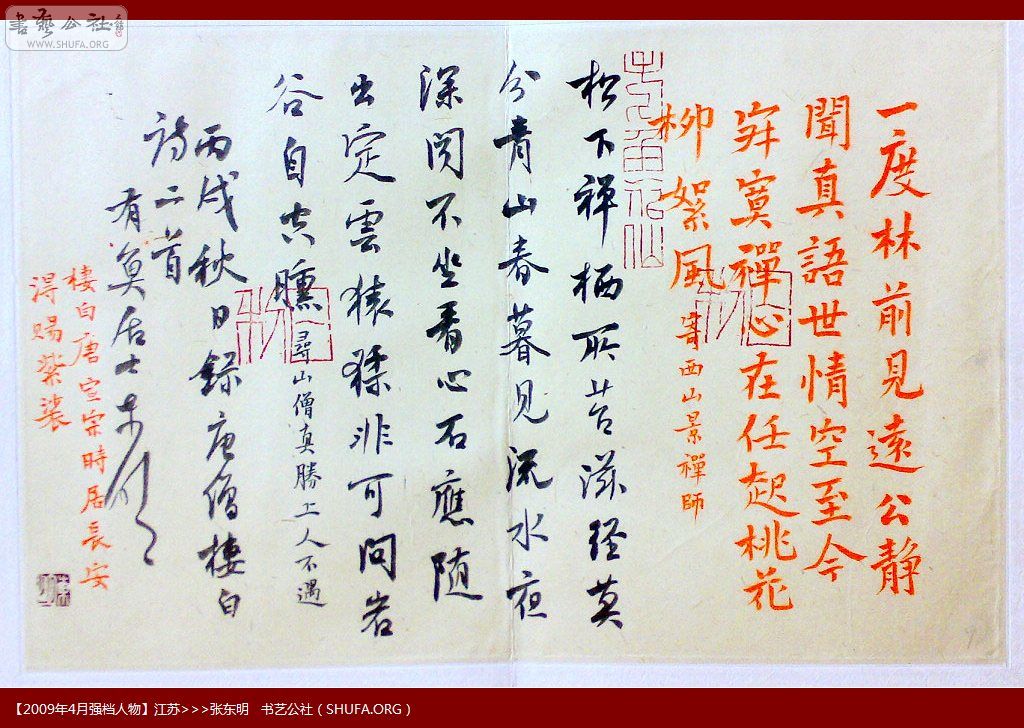 書藝公社
WWW.SHUFA.ORG
一度林前見遠公静
聞真語世情空至今
寂寞禪心在任起桃花
柳絮風 寄西山景禪師
松下禅栖所苔滋径莫
分青山春暮見流水夜
深闻不坐看心石應随
出定雲猿猱非可问岩
谷自空曛 尋山僧真勝上人不遇
丙戌秋日録唐僧棲白
诗二首
有魚居士东明
棲白唐宣宗時居長安
得賜紫袈
【2009年4月强档人物】江苏>>>张东明 书艺公社（SHUFA.ORG）